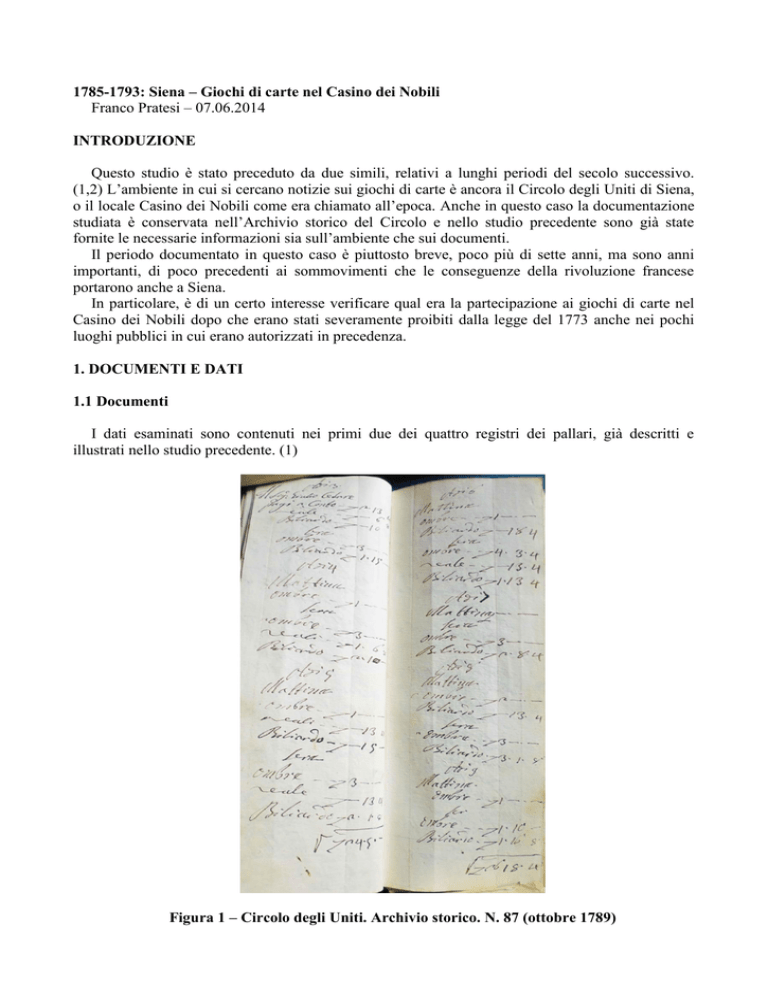 1785-1793: Siena – Giochi di carte nel Casino dei Nobili
Franco Pratesi – 07.06.2014
INTRODUZIONE
Questo studio è stato preceduto da due simili, relativi a lunghi periodi del secolo successivo.
(1,2) L’ambiente in cui si cercano notizie sui giochi di carte è ancora il Circolo degli Uniti di Siena,
o il locale Casino dei Nobili come era chiamato all’epoca. Anche in questo caso la documentazione
studiata è conservata nell’Archivio storico del Circolo e nello studio precedente sono già state
fornite le necessarie informazioni sia sull’ambiente che sui documenti.
Il periodo documentato in questo caso è piuttosto breve, poco più di sette anni, ma sono anni
importanti, di poco precedenti ai sommovimenti che le conseguenze della rivoluzione francese
portarono anche a Siena.
In particolare, è di un certo interesse verificare qual era la partecipazione ai giochi di carte nel
Casino dei Nobili dopo che erano stati severamente proibiti dalla legge del 1773 anche nei pochi
luoghi pubblici in cui erano autorizzati in precedenza.
1. DOCUMENTI E DATI
1.1 Documenti
I dati esaminati sono contenuti nei primi due dei quattro registri dei pallari, già descritti e
illustrati nello studio precedente. (1)
Biliardo
sera
ombre
Biliardo
Mattina
ombre
sera
ombre
reale
Biliardo
Mattina
ombre
reale
Biliardo
sera
ombre
reale
Biliardo
Mattina
ombre
Biliardo
sera
ombre
reale
Biliardo
Mattina
sera
ombre
Biliardo
Mattina
ombre
Biliardo
sera
ombre
Biliardo
Mattina
ombre
ombre
Biliardo
Figura 1 – Circolo degli Uniti. Archivio storico. N. 87 (ottobre 1789)